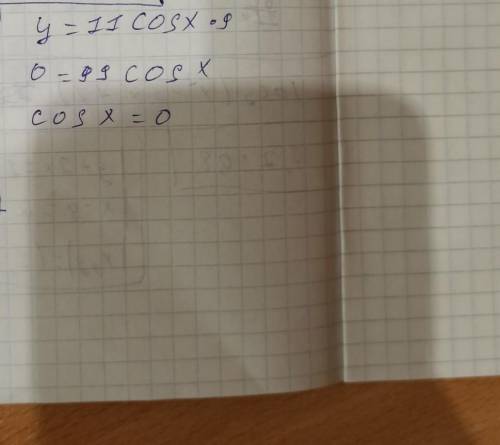 y = 11 cos x · 9
0 = 99 cos x
cos x = 0